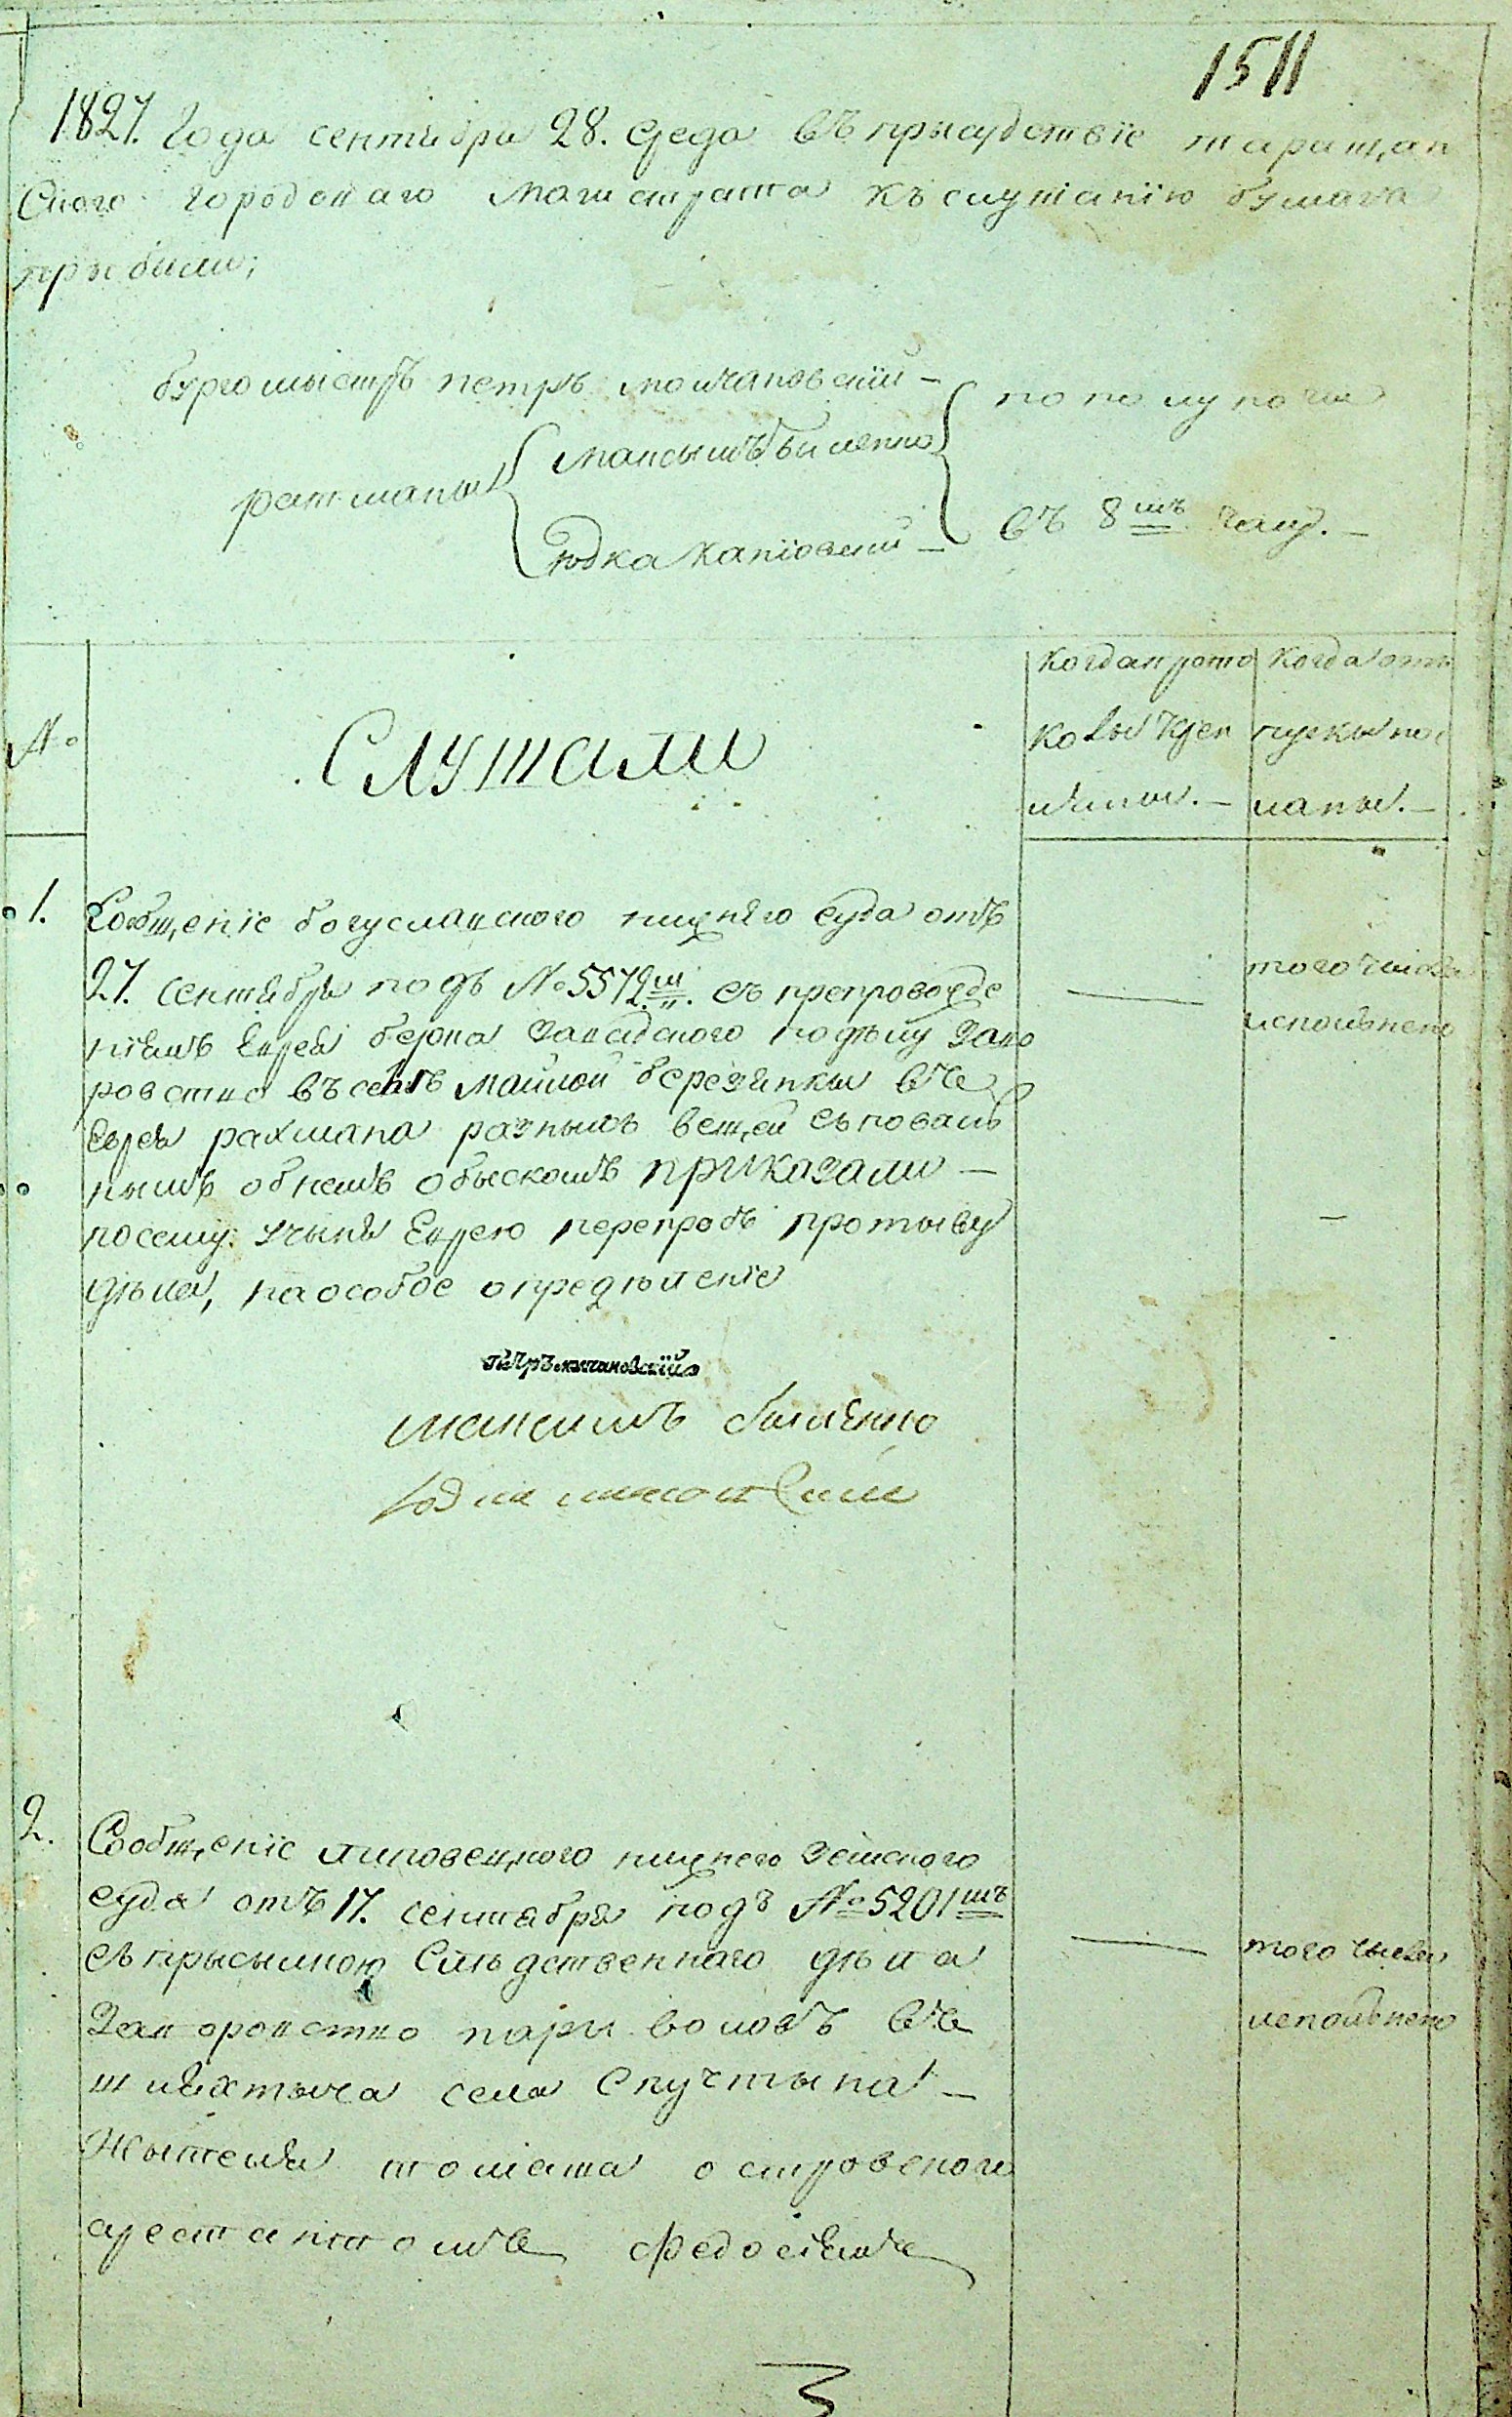 1511
1827. Года сентября 28. среда въ присудствіе таращан
ского городскаго магистрата къ слушанію бумага
прыбыли;
бургомыстръ петръ молчановскій —
ратманы
максымъ быленко
юдка каніовскій —
по полуночи
въ 8мъ часу. —
№
Слушали
когда прото
колы креп
лены. —
когда от
пуски по
ланы. —
1. Сообщеніе богуславского нижнего суда отъ
27. сентября подъ № 5572м. съ препровожде
ніемъ еврея берка подѣлу заво
ровство въ селѣ малой березянкы въ
еврея рахмана разныхъ вещей съ повал
нымъ обнемъ обыскомъ приказали —
посему учыня еврею перепросъ протыву
дѣла, на особое опредѣленіе
того числа
исполнено
—
петръ молчановскій
максимъ былѣнко
2. Сообщеніе липовецкого нижнего земского
суда отъ 17. сентября подъ № 5201мъ
съ прысылкою слѣдственного дѣла
заворовство пары воловъ въ
шляхтыча села скучтына —
жытеля томаша островского
арестантомъ федосѣемъ
того числа
исполнено
3